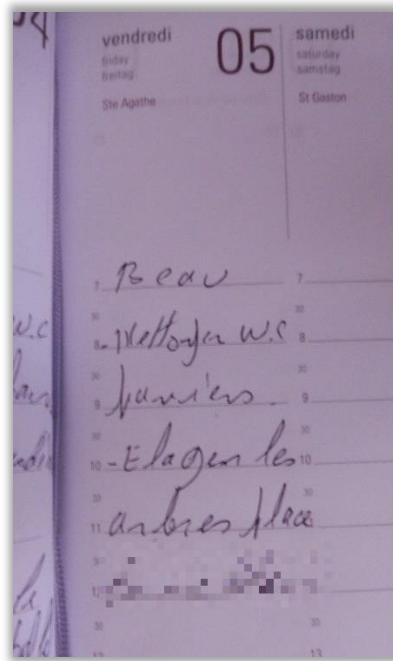 vendredi
friday
freitag
05
Ste Agathe
samedi
saturday
samstag
St Gaston
7 Beau 7
30 30
w.c
8 - Nettoyer w.c 8
30 30
9 9
30 30
10 - Elager les 10
30 30
11 arbres place
30
30 30
13